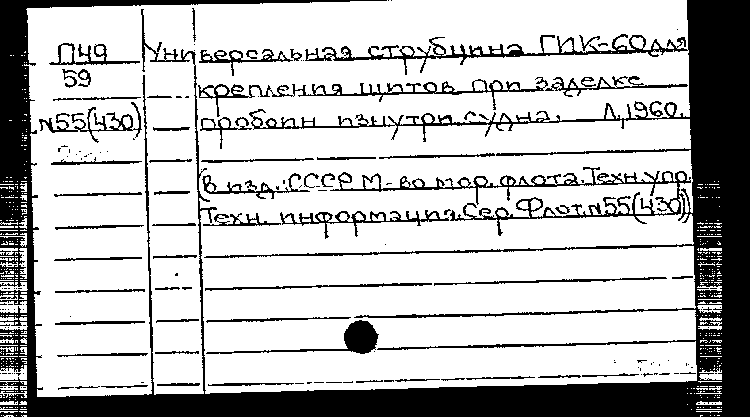 П49 Универсальная струбцина ГИК-60 для
59 крепления щитов при заделке
N55(430) пробоин изнутри судна. Л,1960.
(В изд.: СССР М-во мор. флота. Техн. упр.
Техн. информация. Сер. Флот. N55(430))